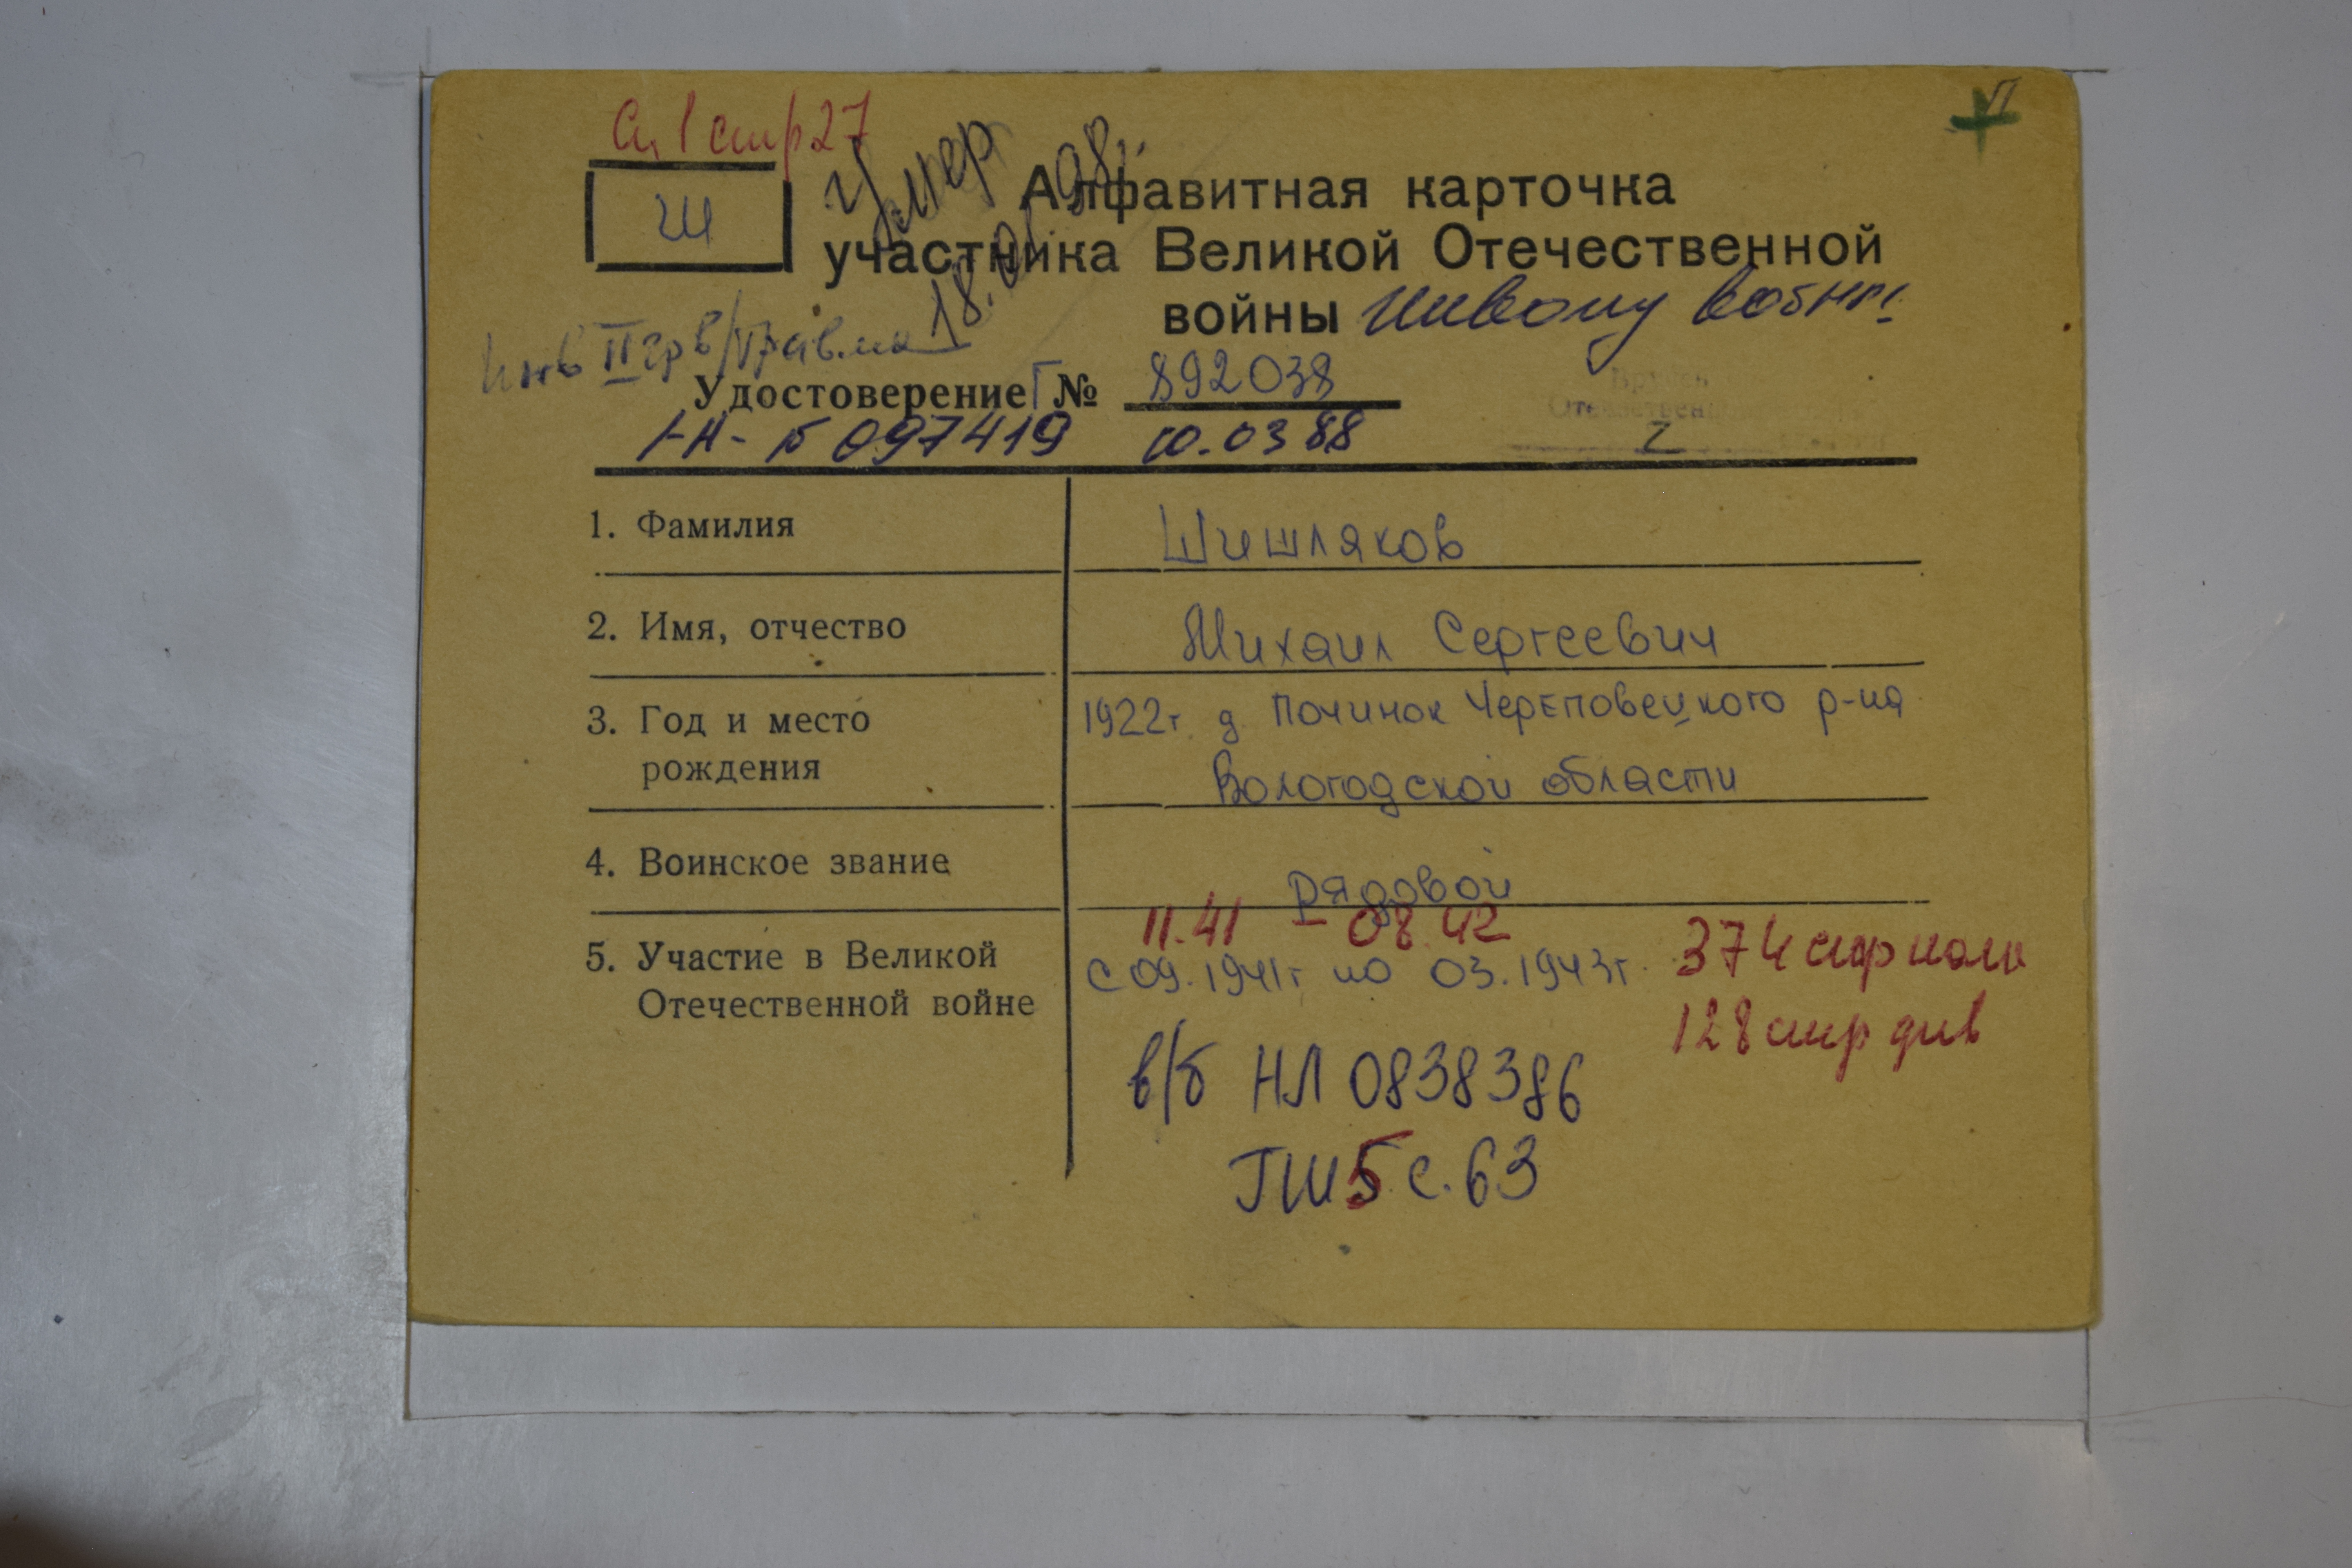 Сп 1 стр 27
Ш
Умер
18.01.98г.
Алфавитная карточка
участника Великой Отечественной
войны Инвалид войны
Инв II гр в/травма
Удостоверение Г № 892038
I-Н-Б 097419 10.03 88
Вручен
Отечественной
I
1. Фамилия Шишляков
2. Имя, отчество Михаил Сергеевич
3. Год и место 1922г д. Починок Череповецкого р-на
рождения Вологодской области
4. Воинское звание рядовой
11.41 - 08.42
5. Участие в Великой с 09.1941г по 03.1943г. 374 стр полк
Отечественной войне 128 стр див
в/б НЛ 0838386
ГШ 5 с. 63